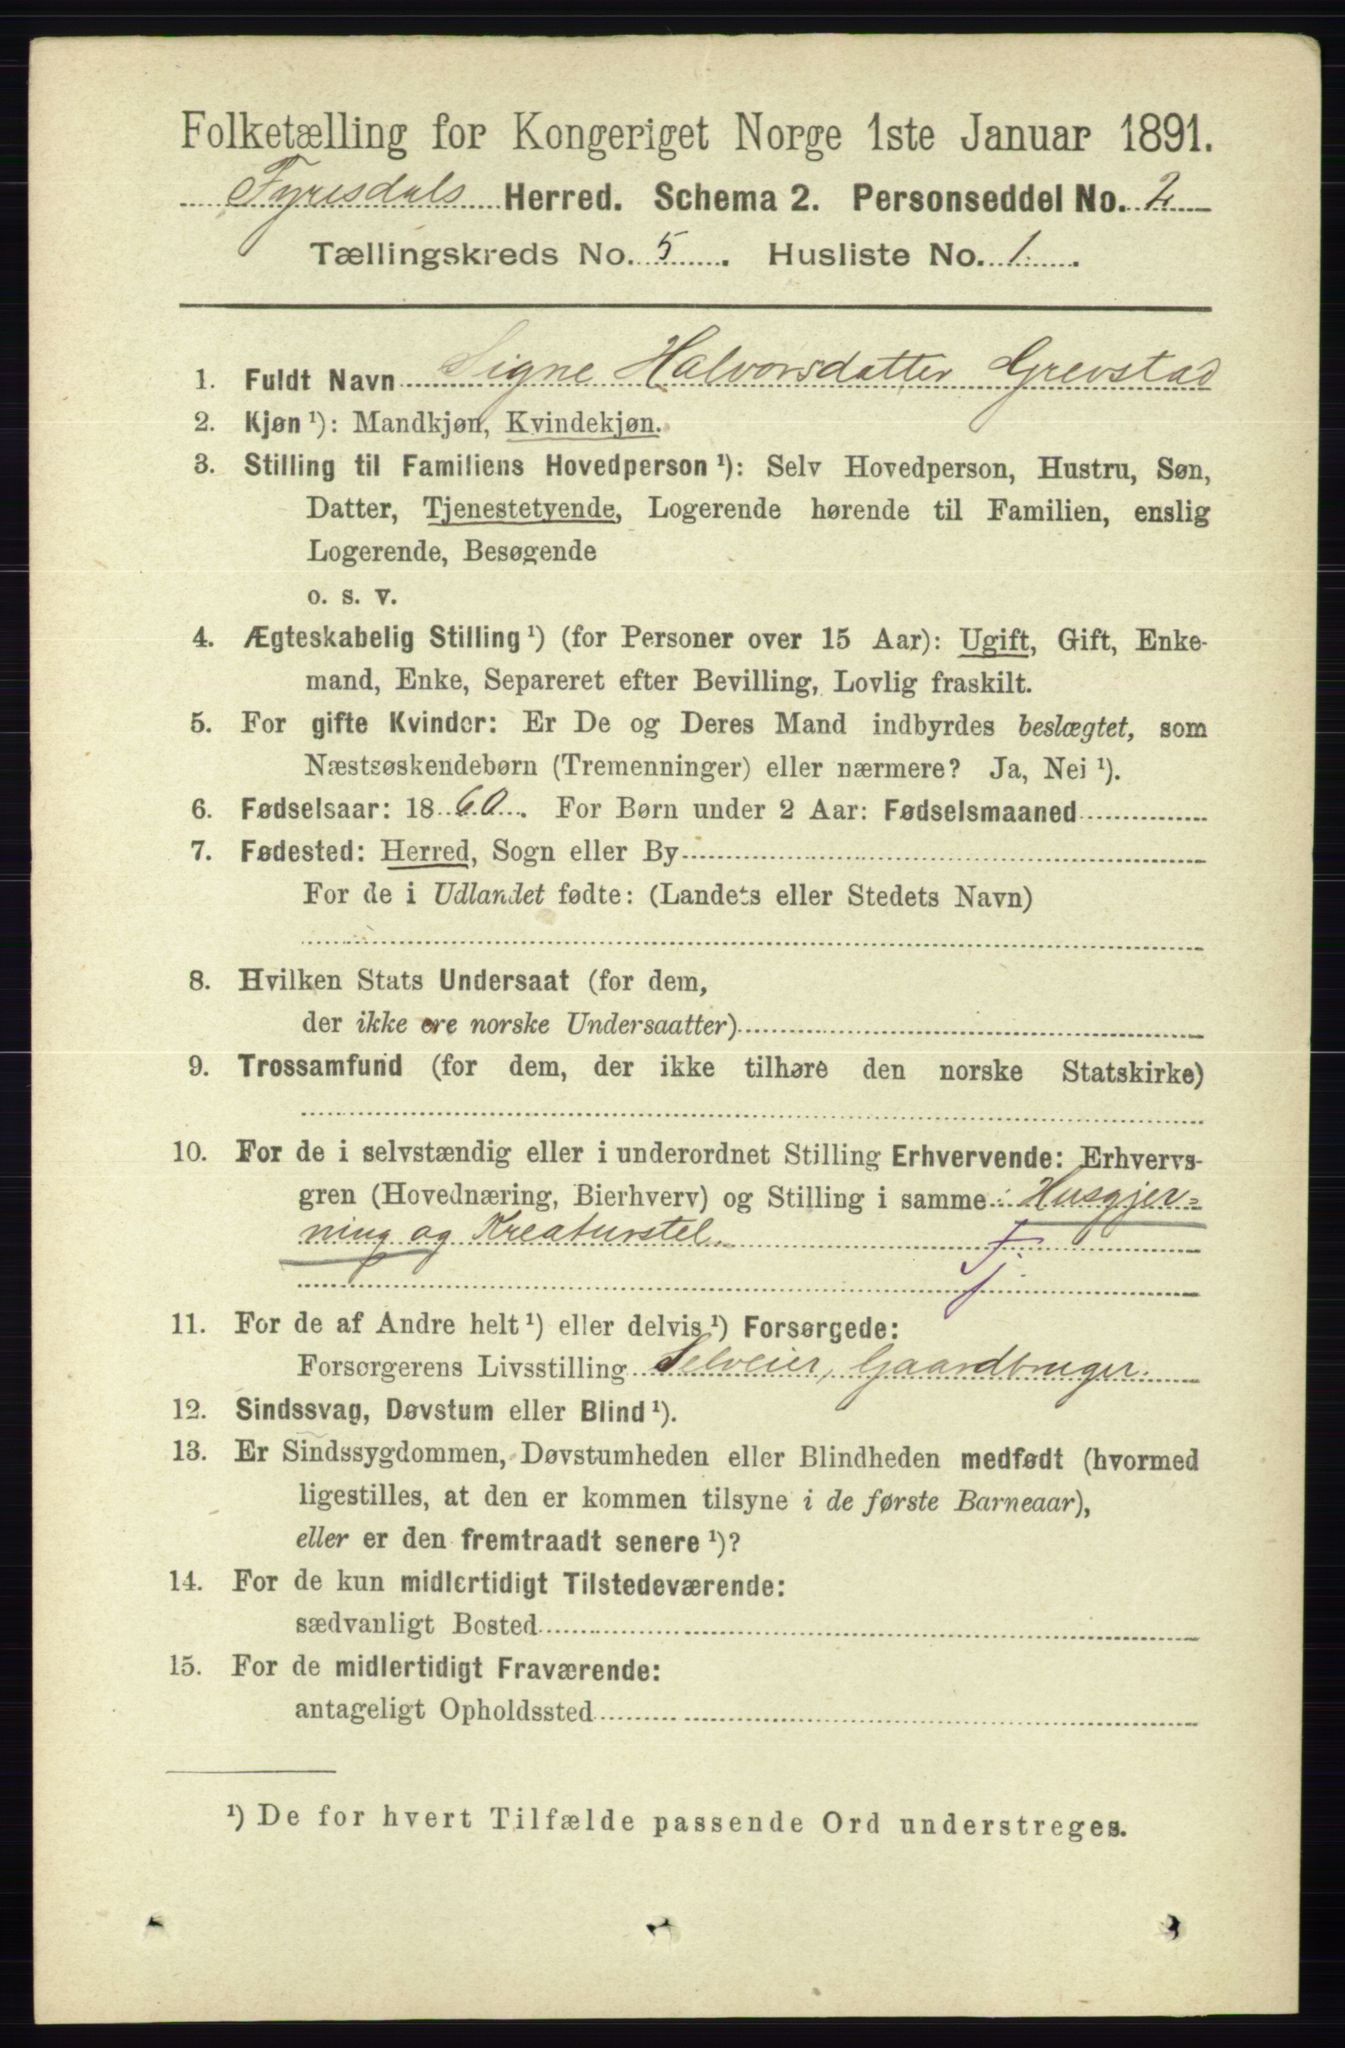 Folketælling for Kongeriget Norge 1ste Januar 1891.
Fyresdals Herred. Schema 2. Personseddel No. 2
Tællingskreds No. 5. Husliste No. 1.
1. Fuldt Navn Signe Halvorsdatter Grevstad
2. Kjøn ¹): Mandkjøn, Kvindekjøn.
3. Stilling til Familiens Hovedperson ¹): Selv Hovedperson, Hustru, Søn,
Datter, Tjenestetyende, Logerende hørende til Familien, enslig
Logerende, Besøgende
o. s. v.
4. Ægteskabelig Stilling ¹) (for Personer over 15 Aar): Ugift, Gift, Enke-
mand, Enke, Separeret efter Bevilling, Lovlig fraskilt.
5. For gifte Kvinder: Er De og Deres Mand indbyrdes beslægtet, som
Næstsøskendebørn (Tremenninger) eller nærmere? Ja, Nei ¹).
6. Fødselsaar: 1860. For Børn under 2 Aar: Fødselsmaaned
7. Fødested: Herred, Sogn eller By
For de i Udlandet fødte: (Landets eller Stedets Navn)
8. Hvilken Stats Undersaat (for dem,
der ikke ere norske Undersaatter)
9. Trossamfund (for dem, der ikke tilhøre den norske Statskirke)
10. For de i selvstændig eller i underordnet Stilling Erhvervende: Erhvervs-
gren (Hovednæring, Bierhverv) og Stilling i samme: Husgjer=
ning og Kreaturstel.
Tj.
11. For de af Andre helt ¹) eller delvis ¹) Forsørgede:
Forsørgerens Livsstilling Selveier, Gaardbruger.
12. Sindssvag, Døvstum eller Blind ¹).
13. Er Sindssygdommen, Døvstumheden eller Blindheden medfødt (hvormed
ligestilles, at den er kommen tilsyne i de første Barneaar),
eller er den fremtraadt senere ¹)?
14. For de kun midlertidigt Tilstedeværende:
sædvanligt Bosted
15. For de midlertidigt Fraværende:
antageligt Opholdssted
¹) De for hvert Tilfælde passende Ord understreges.